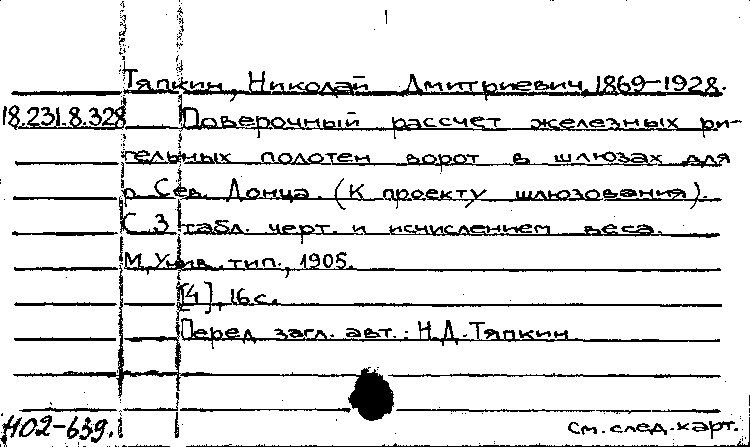 Тяпкин, Николай Дмитриевич, 1869-1928.
18.231.8.328 Поверочный рассчет железных ри-
гельных полотен ворот в шлюзах для
р. Сев. Донца. (К проекту шлюзования).
С 3 табл. черт. и исчислением веса.
М, Унив. тип., 1905.
[4], 16 с.
Перед загл. авт.: Н.Д. Тяпкин
Н02-639.
см. след. карт.